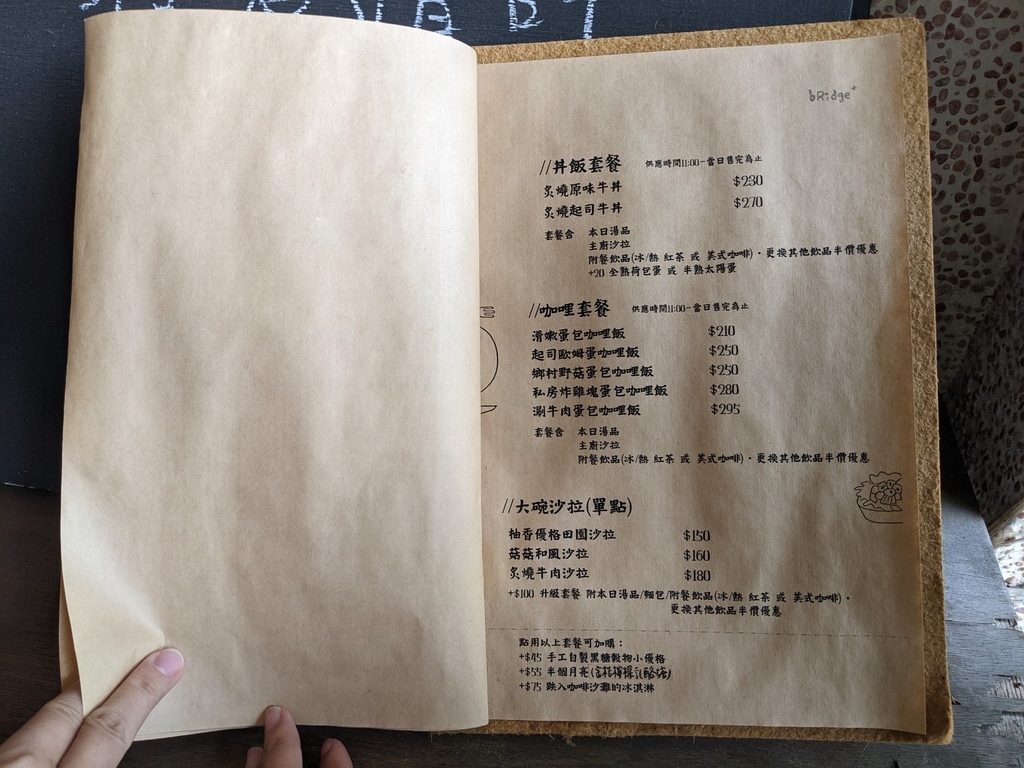 bRidge+
//丼飯套餐 供應時間11:00-當日售完為止
炙燒原味牛丼 $230
炙燒起司牛丼 $270
套餐含 本日湯品
主廚沙拉
附餐飲品(冰/熱 紅茶 或 美式咖啡)，更換其他飲品半價優惠
+20 全熟荷包蛋 或 半熟太陽蛋
//咖哩套餐 供應時間11:00-當日售完為止
滑嫩蛋包咖哩飯 $210
起司歐姆蛋咖哩飯 $250
鄉村野菇蛋包咖哩飯 $250
私房炸雞塊蛋包咖哩飯 $280
涮牛肉蛋包咖哩飯 $295
套餐含 本日湯品
主廚沙拉
附餐飲品(冰/熱 紅茶 或 美式咖啡)，更換其他飲品半價優惠
//大碗沙拉(單點)
柚香優格田園沙拉 $150
菇菇和風沙拉 $160
炙燒牛肉沙拉 $180
+$100 升級套餐 附本日湯品/麵包/附餐飲品(冰/熱 紅茶 或 美式咖啡)，
更換其他飲品半價優惠
點用以上套餐可加購：
+$45 手工自製黑糖穀物小優格
+$55 半個月亮
+$75 跌入咖啡沙灘的冰淇淋